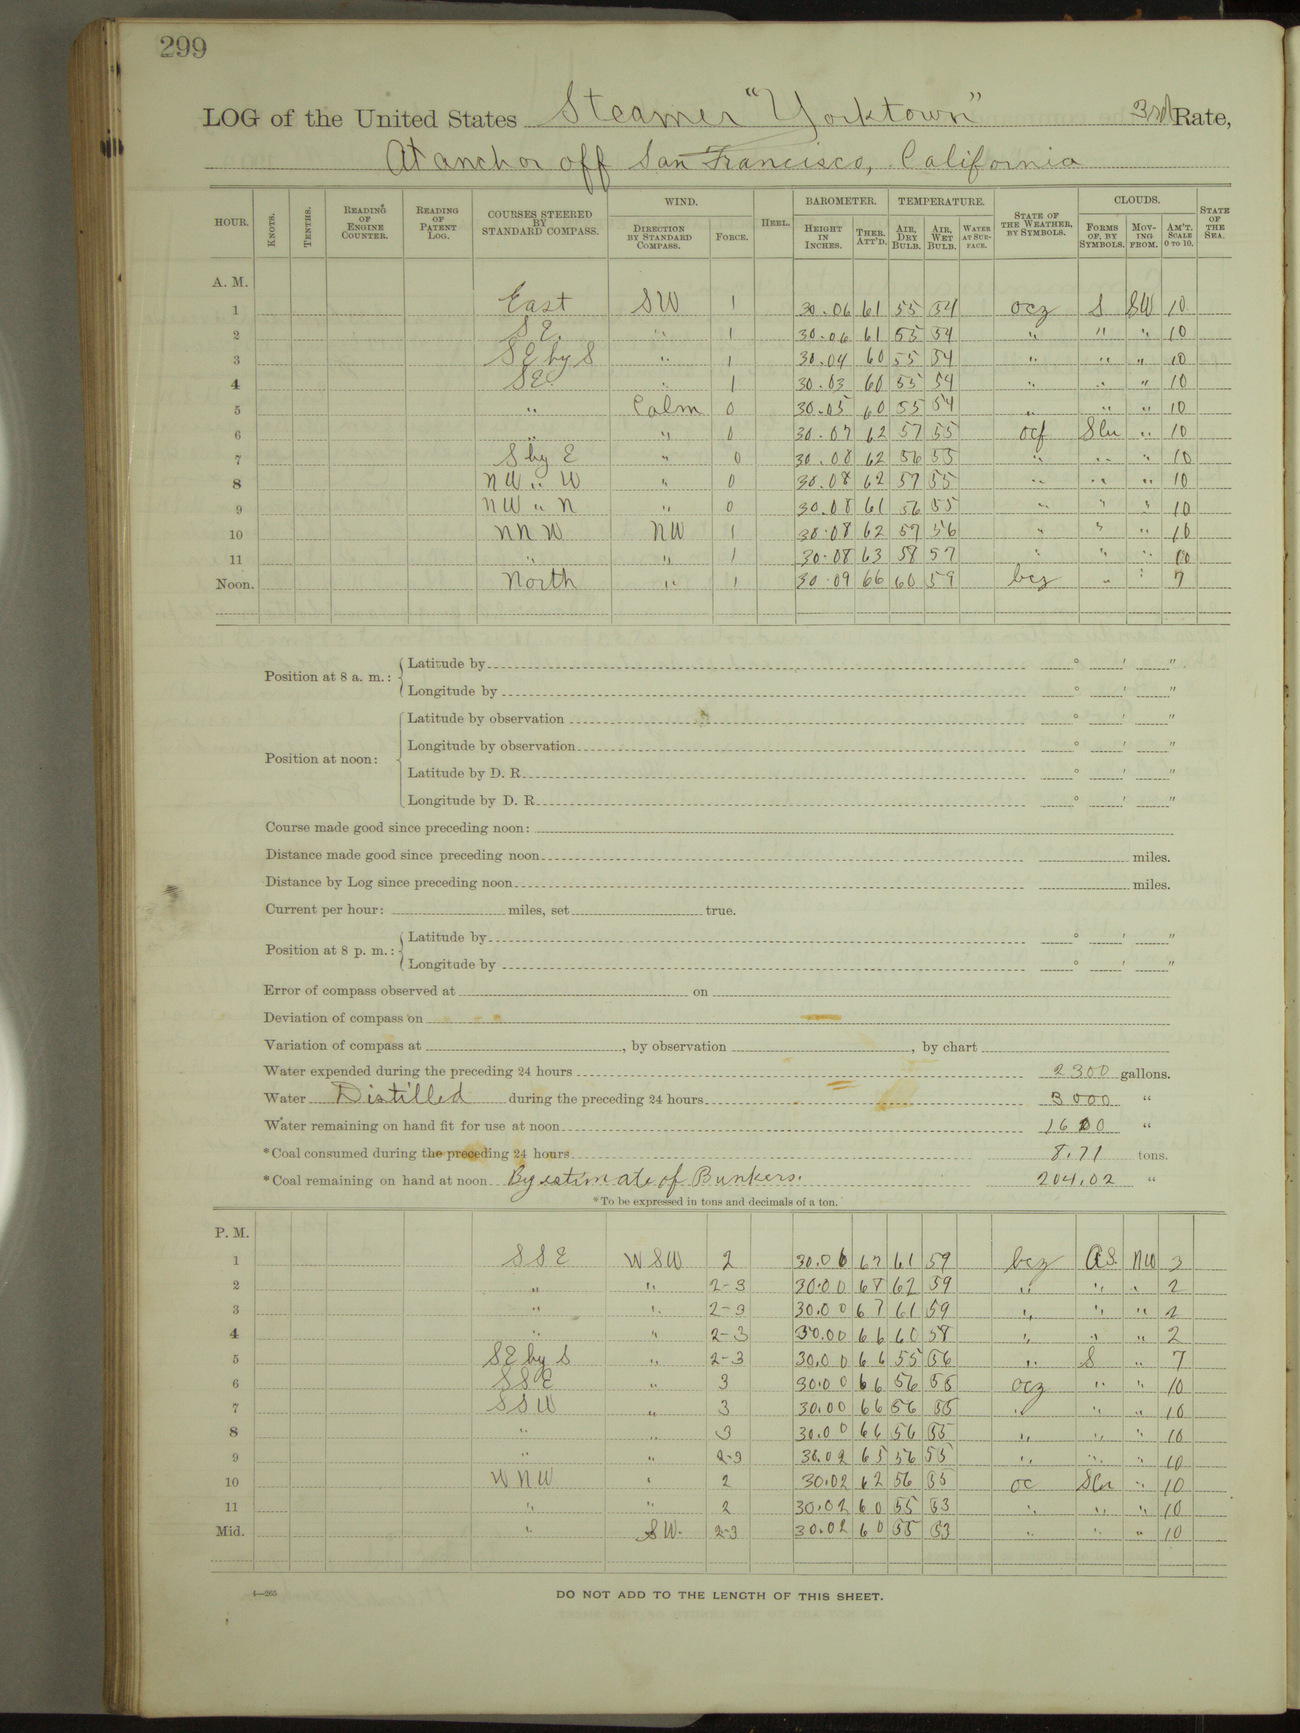 299
LOG of the United States Steamer "Yorktown" 3rd Rate,
At anchor off San Francisco, California
HOUR. KNOTS. TENTHS. READING OF ENGINE COUNTER. READING OF PATENT LOG. COURSES STEERED BY STANDARD COMPASS. WIND. DIRECTION BY STANDARD COMPASS. FORCE. HEEL. BAROMETER. HEIGHT IN INCHES. THER. ATT'D. TEMPERATURE. AIR, DRY BULB. AIR, WET BULB. WATER AT SURFACE. STATE OF THE WEATHER, BY SYMBOLS. CLOUDS. FORMS OF, BY SYMBOLS. MOVING FROM. AM'T. SCALE 0 TO 10. STATE OF THE SEA.
A. M.
1 East SW 1 30.06 61 55 54 ocz S SW 10
2 SE. " 1 30.06 61 55 54 " " " 10
3 SE by S " 1 30.04 60 55 54 " " " 10
4 SE. " 1 30.03 60 55 54 " " " 10
5 " Calm 0 30.05 60 55 54 " " " 10
6 " " 0 30.07 62 57 55 ocf Scu " 10
7 S by E " 0 30.08 62 56 55 " " " 10
8 NW " W " 0 30.08 62 57 55 " " " 10
9 NW " N " 0 30.08 61 56 55 " " " 10
10 NNW NW 1 30.08 62 57 56 " " " 10
11 " " 1 30.08 63 58 57 " " " 10
Noon. North " 1 30.09 66 60 59 bcz " " 7
Position at 8 a. m.: Latitude by ° ′ ″
Longitude by ° ′ ″
Position at noon: Latitude by observation ° ′ ″
Longitude by observation ° ′ ″
Latitude by D. R. ° ′ ″
Longitude by D. R. ° ′ ″
Course made good since preceding noon:
Distance made good since preceding noon miles.
Distance by Log since preceding noon miles.
Current per hour: miles, set true.
Position at 8 p. m.: Latitude by ° ′ ″
Longitude by ° ′ ″
Error of compass observed at on
Deviation of compass on
Variation of compass at , by observation , by chart
Water expended during the preceding 24 hours 2300 gallons.
Water Distilled during the preceding 24 hours 3000 "
Water remaining on hand fit for use at noon "
*Coal consumed during the preceding 24 hours 8.71 tons.
*Coal remaining on hand at noon By estimate of Bunkers. 204.02 "
*To be expressed in tons and decimals of a ton.
P. M.
1 SSE WSW 2 30.06 67 61 59 bcz AS. NW 3
2 " " 2-3 30.00 67 62 59 " " " 2
3 " " 2-3 30.00 67 61 59 " " " 2
4 " " 2-3 30.00 66 60 58 " " " 2
5 SE by S " 2-3 30.00 66 55 56 " S " 7
6 SSE " 3 30.00 66 56 55 ocz " " 10
7 SSW " 3 30.00 66 56 55 " " " 10
8 " " 3 30.00 66 56 55 " " " 10
9 " " 2-3 30.02 65 56 55 " " " 10
10 WNW " 2 30.02 62 56 55 oc Scu " 10
11 " " 2 30.02 60 55 53 " " " 10
Mid. " SW. 2-3 30.02 60 55 53 " " " 10
4—265
DO NOT ADD TO THE LENGTH OF THIS SHEET.